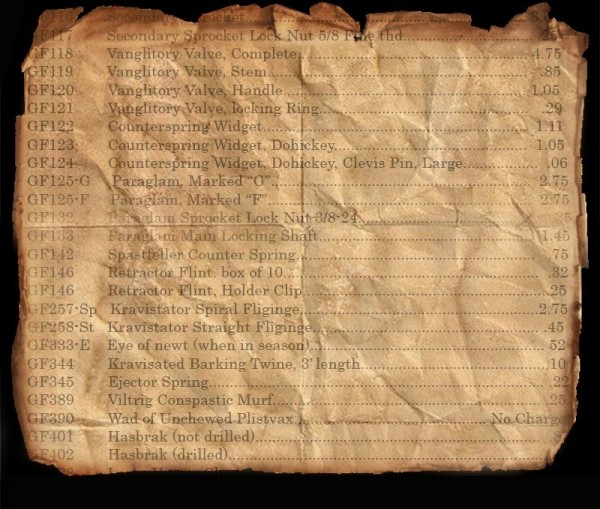 Sprocket
GF117 Secondary Sprocket Lock Nut 5/8 Fine thd. .25
GF118 Vanglitory Valve, Complete 4.75
GF119 Vanglitory Valve, Stem .85
GF120 Vanglitory Valve, Handle 1.05
GF121 Vanglitory Valve, locking Ring .29
GF122 Counterspring Widget 1.11
GF123 Counterspring Widget, Dohickey 1.05
GF124 Counterspring Widget, Dohickey, Clevis Pin, Large .06
GF125-G Paraglam, Marked "G" 2.75
GF125-F Paraglam, Marked "F" 2.75
GF132 Paraglam Sprocket Lock Nut 3/8-24
GF133 Paraglam Main Locking Shaft 1.45
GF142 Spastfeller Counter Spring .75
GF146 Retractor Flint, box of 10 .32
GF146 Retractor Flint, Holder Clip .25
GF257-Sp Kravistator Spiral Fliginge 2.75
GF258-St Kravistator Straight Fliginge .45
GF333-E Eye of newt (when in season) 52
GF344 Kravisated Barking Twine, 3' length .10
GF345 Ejector Spring .22
GF389 Viltrig Conspastic Murf .25
GF390 Wad of Unchewed Plistvax No Charge
GF401 Hasbrak (not drilled)
GF402 Hasbrak (drilled)